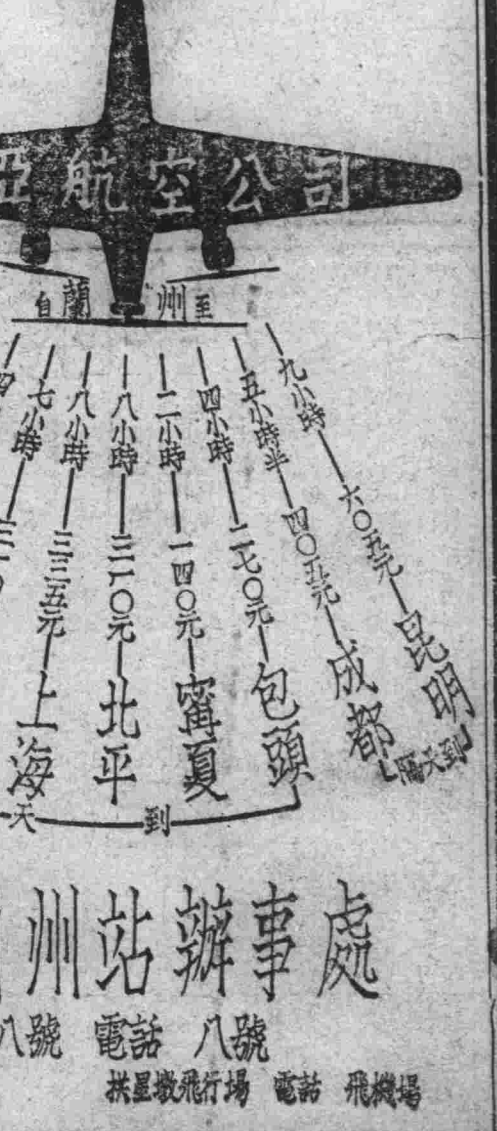 亞航空公司
自蘭州至
九小時 六〇五元 昆明
五小時半 四〇五元 成都
隔天到
四小時 二七〇元 包頭
二小時 一四〇元 甯夏
八小時 三一〇元 北平
八小時 三三五元 上海
七小時
天到
州站辦事處
八號 電話 八號
拱星墩飛行場 電話 飛機場